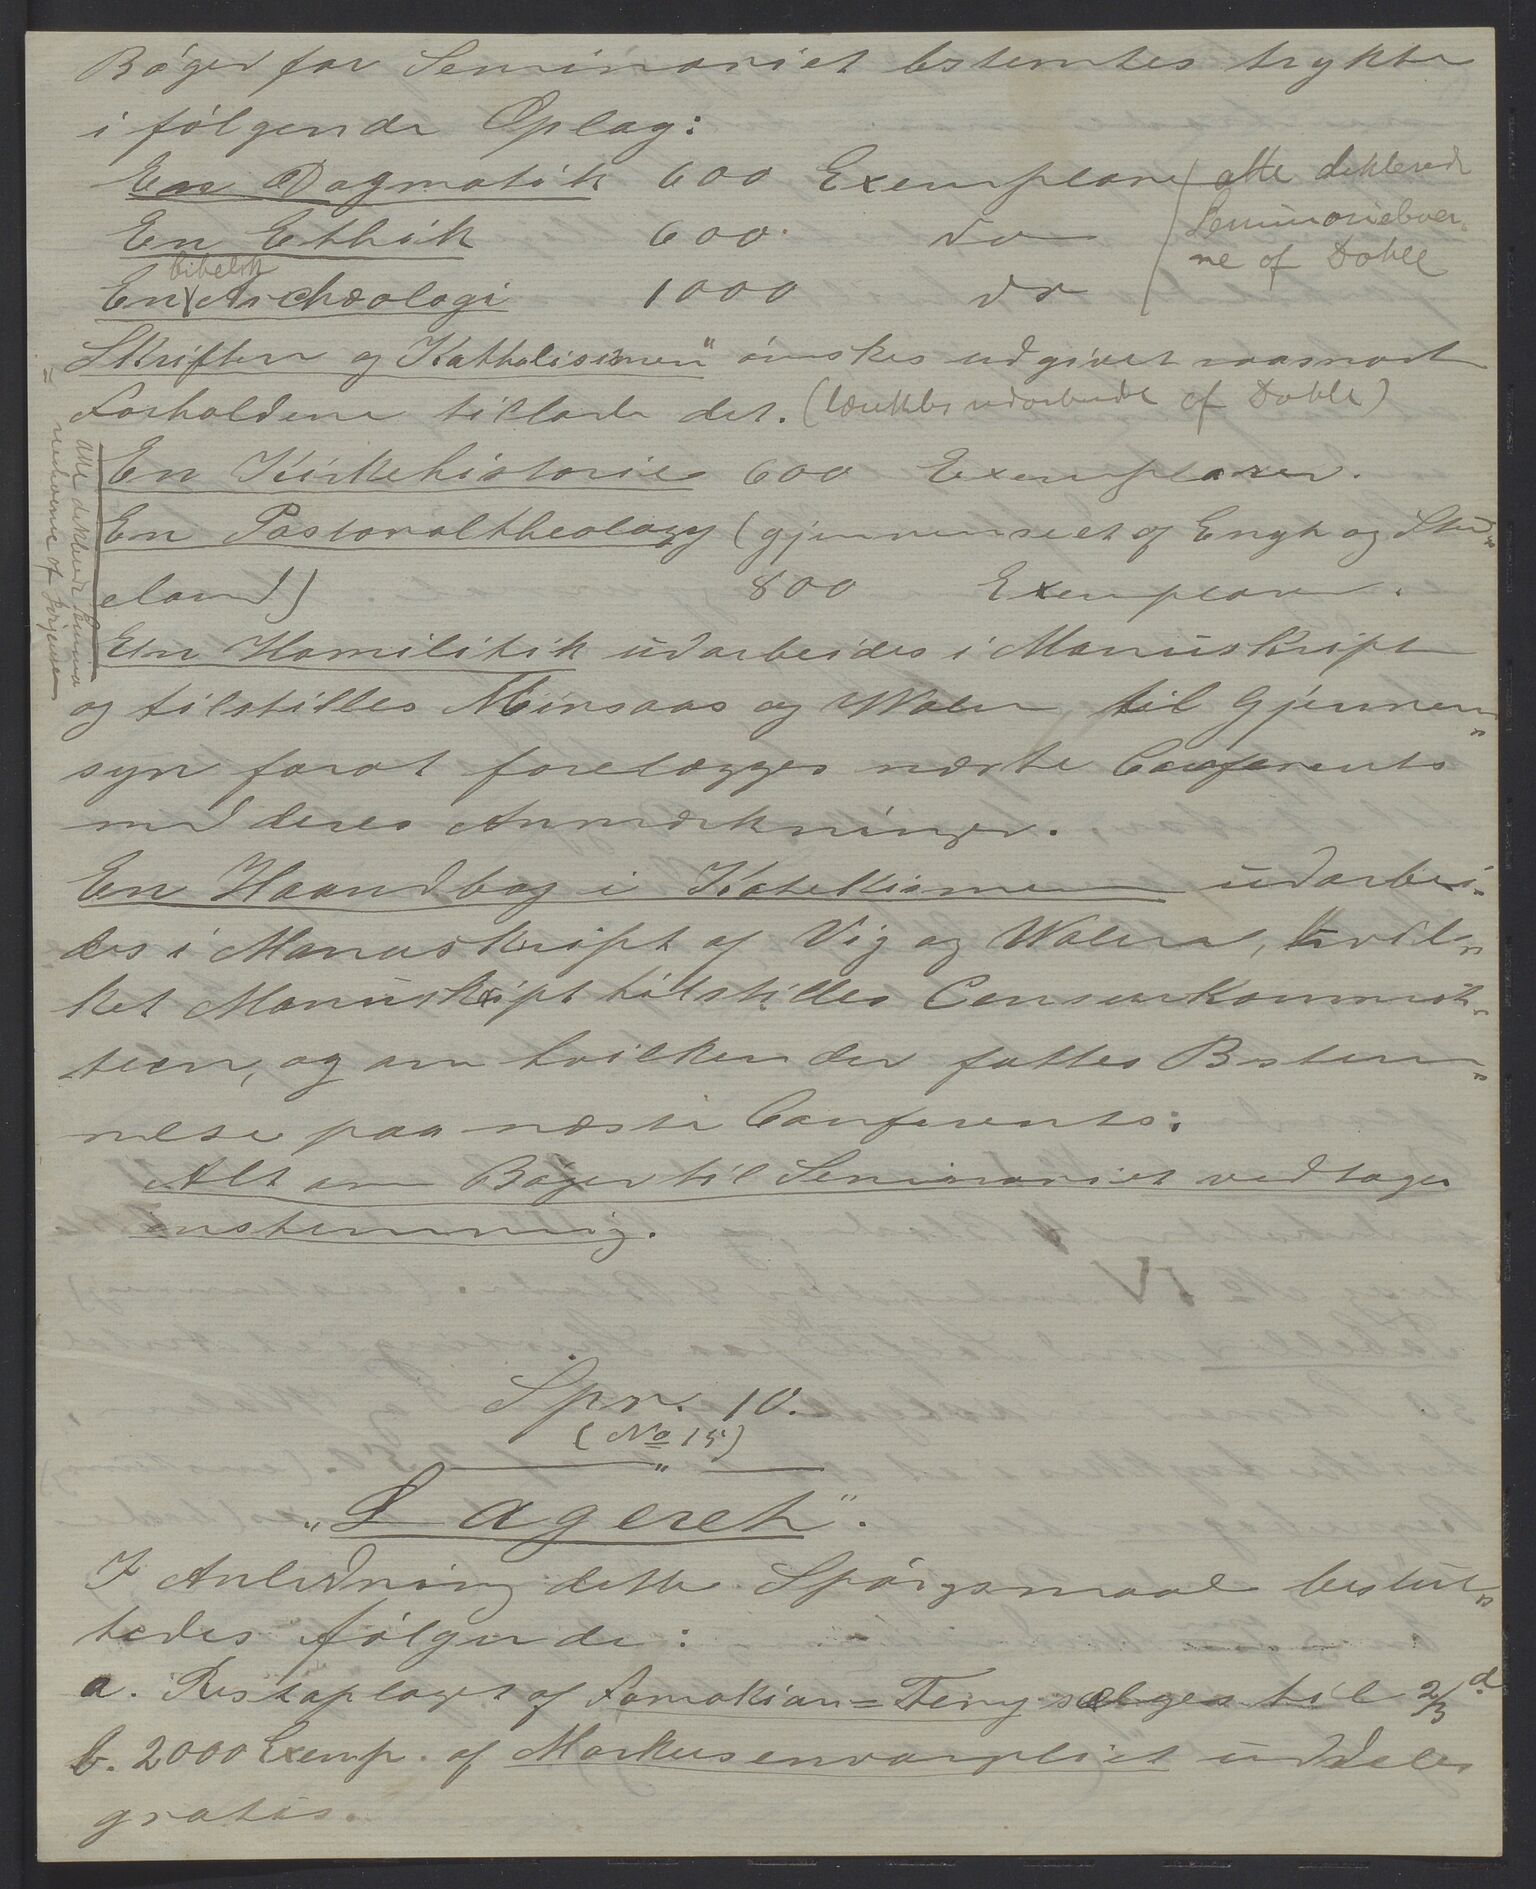 Bøger for Seminariet bestemtes trykte
i følgende Oplag:
En Dogmatik 600 Exemplarer (alle dikterede
En Ethik 600 do Seminariebøger-
ne af Dahle
bibelsk
En Archæologi 1000 do
"Skriften og Katholisismen" ønskes udgivet saasnart
Forholdene tillade det. (tænktes udarbeidet af Dahle)
En Kirkehistorie 600 Exemplarer.
En Pastoraltheology (gjennemseet af Engh og Stu=
eland) 800 Exemplarer.
alle dikterede
af Jørgensen
En Homilitik udarbeides i Manuskript
og tilstilles Minsaas og Walen til Gjennem=
syn forat forelægges næste Conferents
med deres Anmærkninger.
En Haandbog i Katekismen udarbei=
des i Manuskript af Vig og Walen, hvil=
ket Manuskript tilstilles Censurkommit=
teen, og om hvilken der fattes Bestem=
melse paa næste Conferents.
Alt om Bøger til Seminariet vedtages
enstemmig.
Spr. 10.
(No 15)
"Lageret".
I Anledning dette Spørgsmaal beslut=
tedes følgende:
a. Restoplaget af Famakian=Teny sælges til 2/3 d.
b. 2000 Exemp. af Markusevangeliet uddeles
gratis.